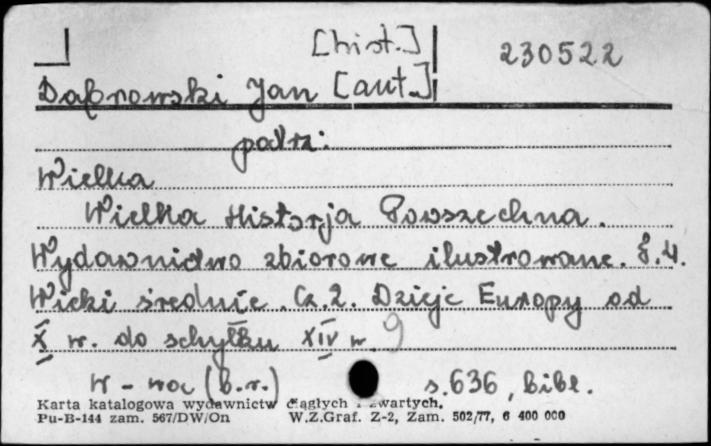 [hist.] 230522
Dąbrowski Jan [aut.]
patrz:
Wielka
Wielka Historja Powszechna.
Wydawnictwo zbiorowe ilustrowane. T.4.
Wieki średnie. Cz.2. Dzieje Europy od
X w. do schyłku XIV w. 9
W-wa (b.r.) s.636, bibl.
Karta katalogowa wydawnictw ciągłych i zwartych.
Pu-B-144 zam. 567/DW/On W.Z.Graf. Z-2, Zam. 502/77, 6 400 000